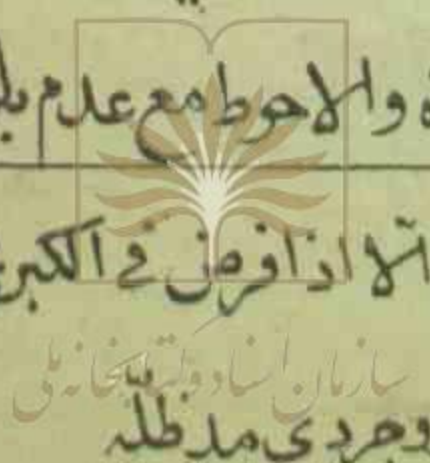 والاحوط مع عدم
الّا اذا فرض فے الكبر
سازمان اسناد و کتابخانه ملی
وجردی مد ظلّه